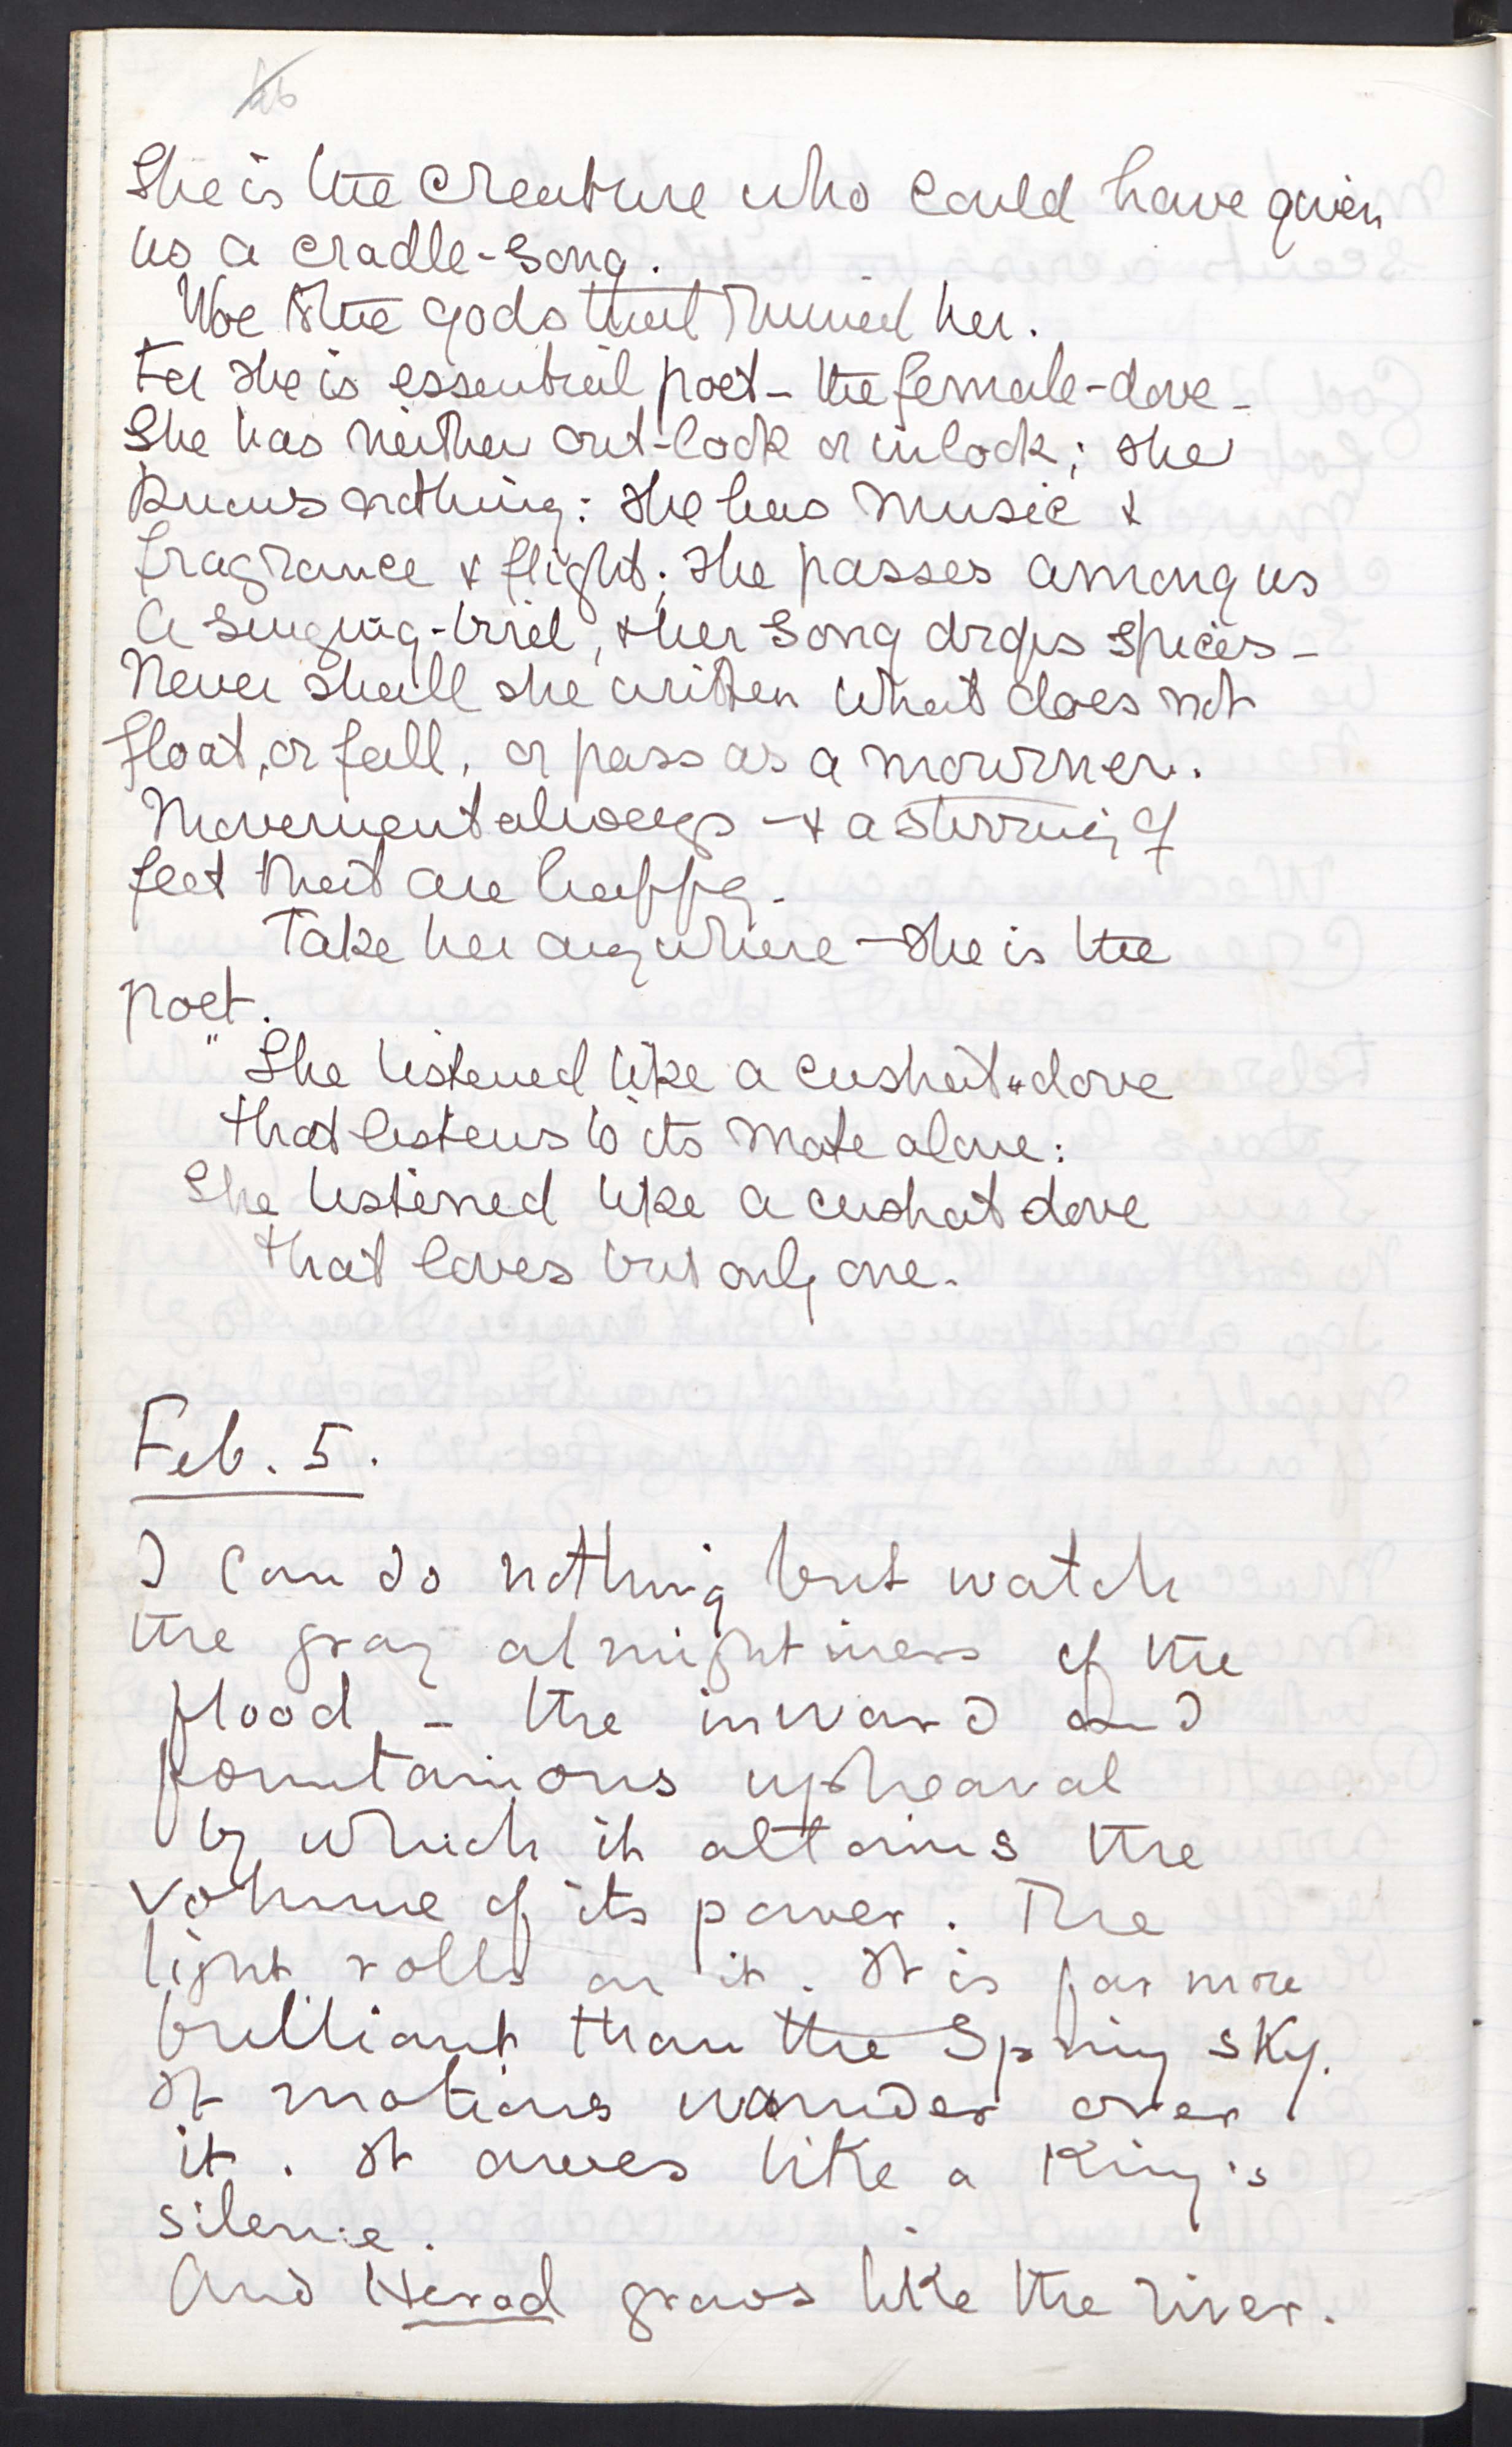 She is the creature who could have given
us a cradle-song.
Woe to the gods that ruined her.
For she is essential poet - the female-dove -
She has neither out-look or inlook; she
knows nothing: she has music &
fragrance & flight; she passes among us
a singing-bird, & her song drops spices -
Never shall she written what does not
float, or fall, or pass as a mourner.
Movement always - & a stirring of
feet that are happy.
Take her anywhere - she is the
poet.
"She listened like a cushat dove
that listens to its mate alone:
She listened like a cushat dove
that loves but only one.
Feb. 5.
I can do nothing but watch
the gray almightiness of the
flood, - the inward and
fountainous upheaval
by which it attains the
volume of its power. The
light rolls on it. It is far more
brilliant than the Spring sky.
It motions wander over
it. It awes like a King's
silence.
And Herod grows like the river.